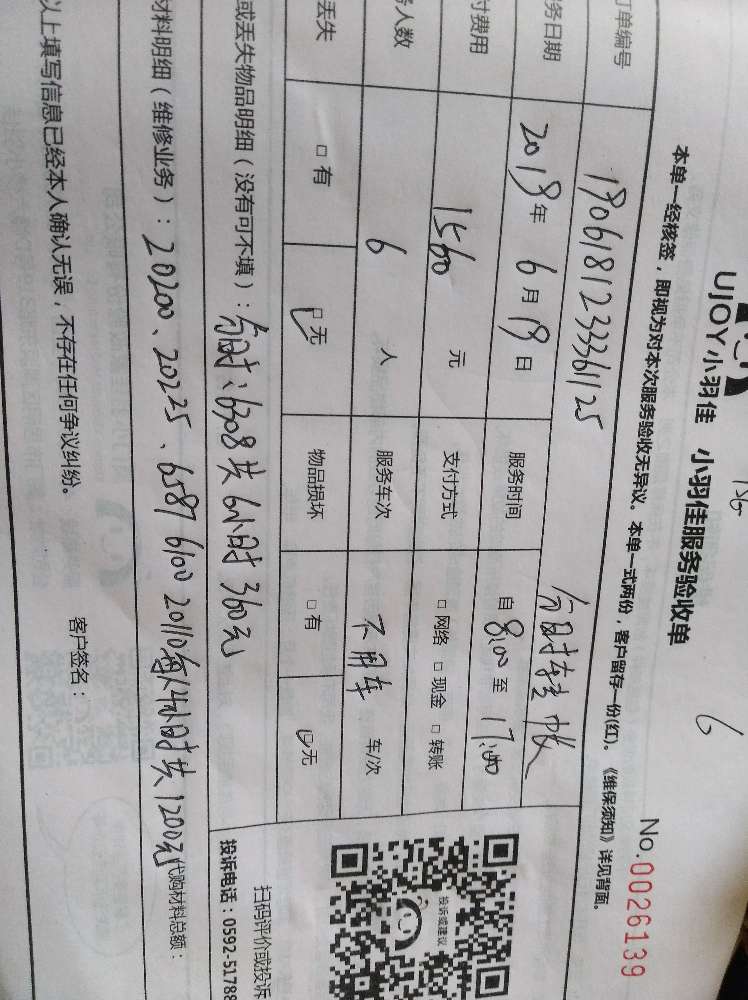 UJOY小羽佳 小羽佳服务验收单
6
No.0026139
本单一经核签，即视为对本次服务验收无异议。本单一式两份，客户留存一份(红)。《维保须知》详见背面。
订单编号 19061812333361125
务日期 2019年6月19日 服务时间 自8:00至17:00
付费用 1560元 支付方式 □网络 □现金 □转账
务人数 6人 服务车次 不用车 车/次
丢失 □有 □无 物品损坏 □有 □无
或丢失物品明细（没有可不填）：分时：6308共6小时360元
材料明细（维修业务）：20200、20225、6587 6100 20110每人4小时共1200元 代购材料总额：
以上填写信息已经本人确认无误，不存在任何争议纠纷。 客户签名：
投诉或建议
扫码评价或投诉
投诉电话：0592-51788